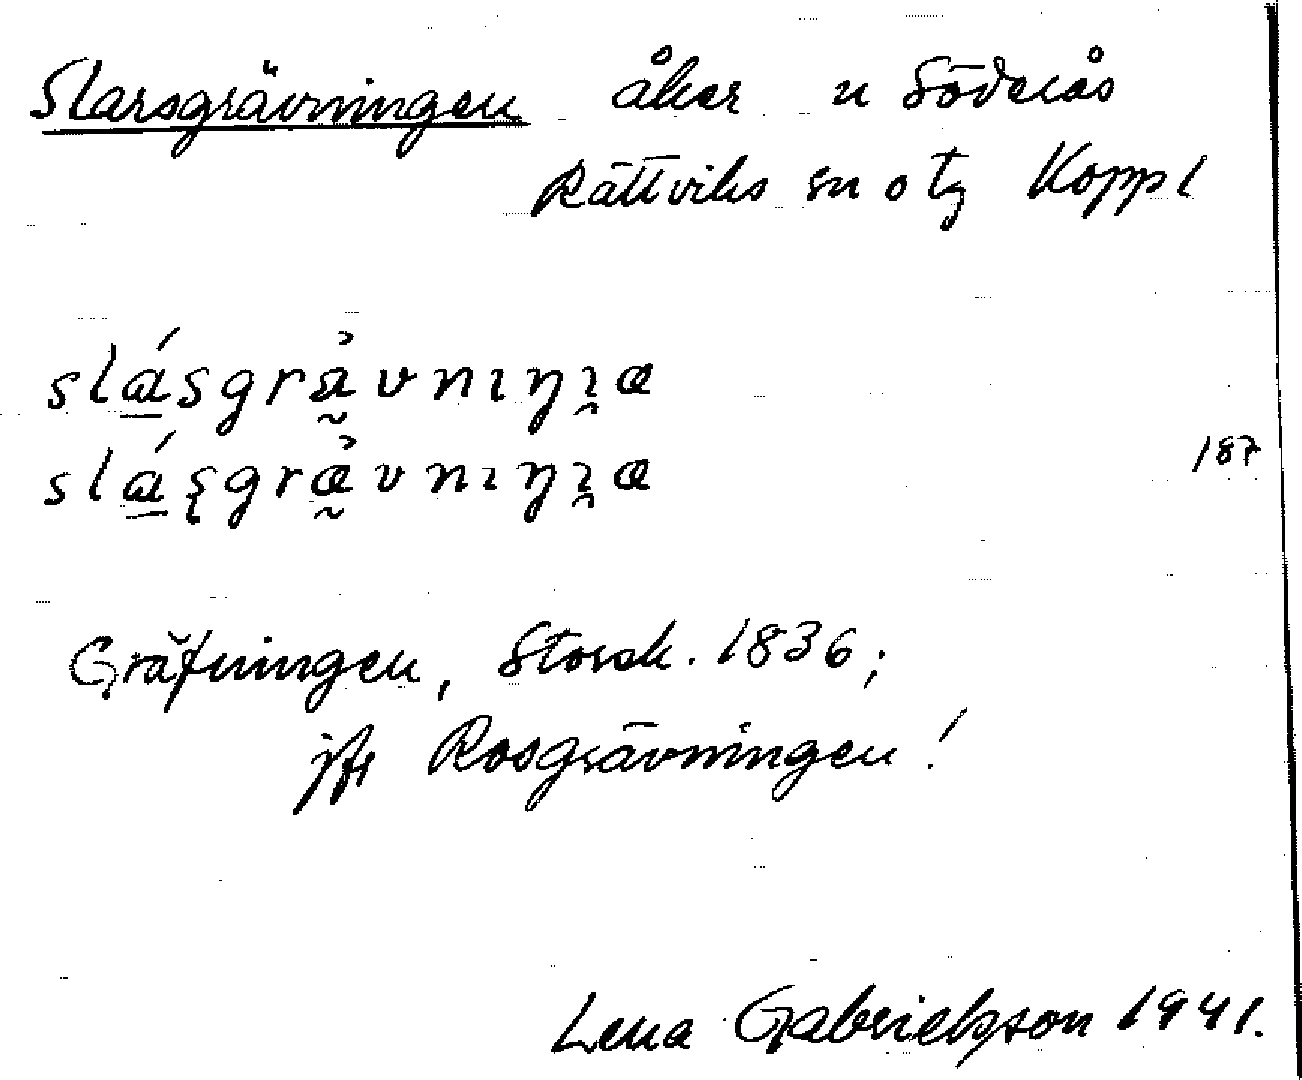 Slarsgrävningen åker n Söderås
Rättviks sn o tg Koppl
slásgrävnıŋıa
slásgrävnıŋıa
187
Gräfningen, Storsk. 1836;
jfr Rosgrävningen!
Lena Gabrielsson 1941.